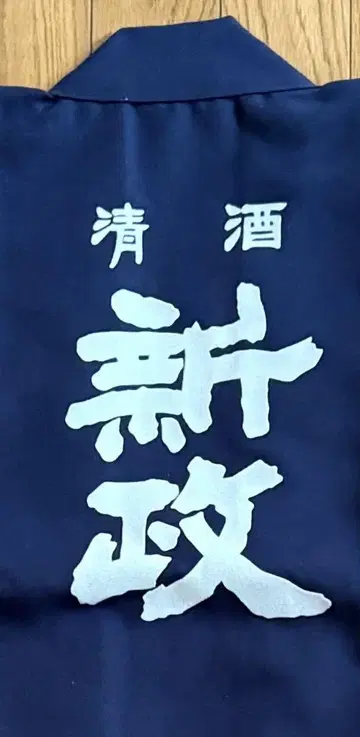 清酒
新政